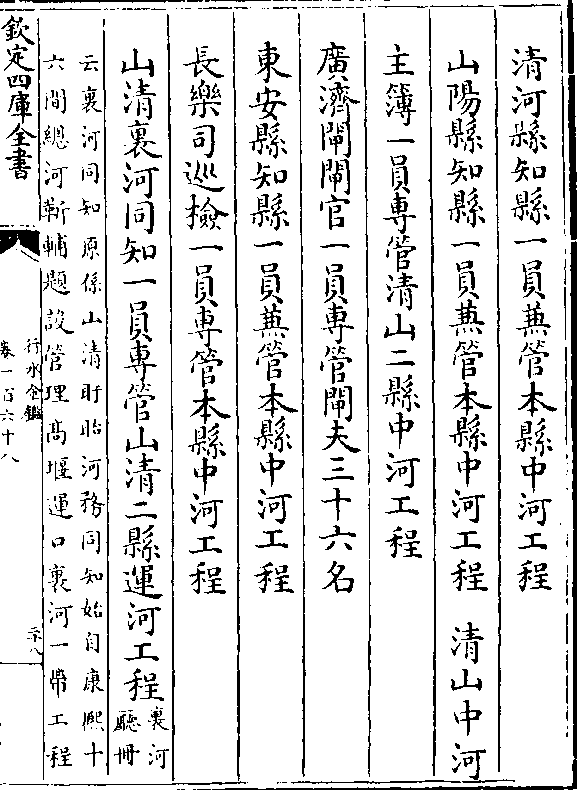 清河縣知縣一員蕪管本縣中河工程
山陽縣知縣一員蕪管本縣中河工程　清山中河
主簿一員專管清山二縣中河工程
廣濟閘閘官一員專管閘夫三十六名
東安縣知縣一員蕪管本縣中河工程
長樂司巡檢一員專管本縣中河工程
山清裏河同知一員專管山清二縣運河工程裏河
廳冊
云裏河同知原係山清盱眙河務同知始自康熙十
六間總河靳輔題設管理髙堰運口裏河一帶工程
欽定四庫全書
行水金鑑
卷一百六十八
二十八